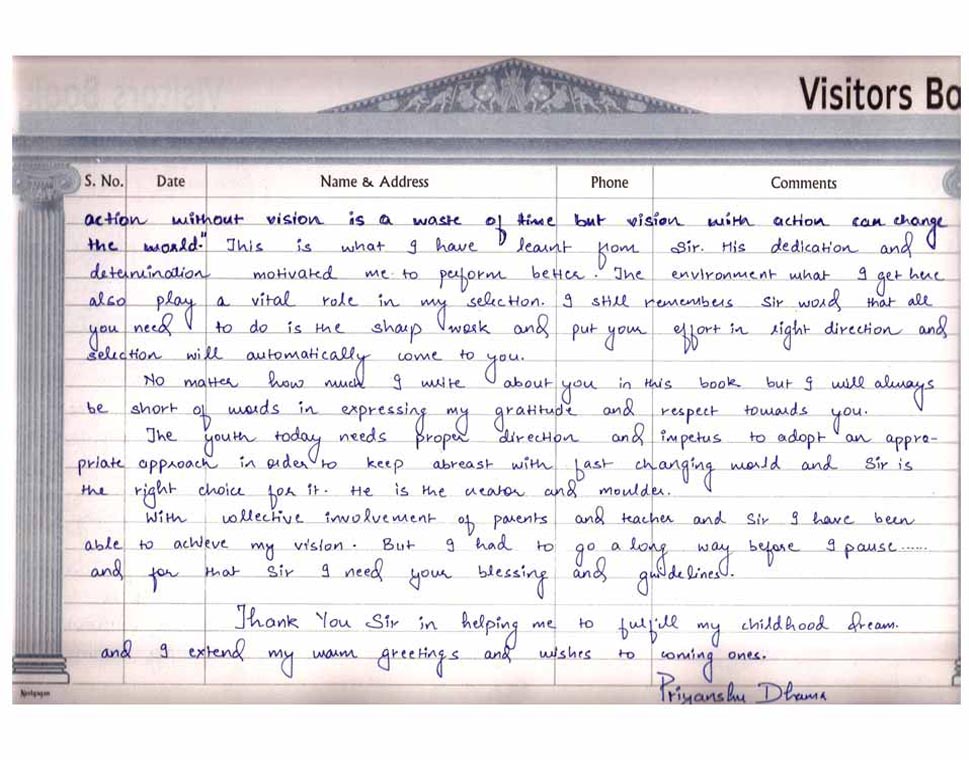 Visitors Bo
S. No. Date Name & Address Phone Comments
action without vision is a waste of time but vision with action can change
the world." This is what I have learnt from Sir. His dedication and
determination motivated me to perform better. The environment what I get here
also play a vital role in my selection. I still remembers Sir word that all
you need to do is the sharp work and put your effort in right direction and
selection will automatically come to you.
No matter how much I write about you in this book but I will always
be short of words in expressing my gratitude and respect towards you.
The youth today needs proper direction and impetus to adopt an appro-
priate approach in order to keep abreast with fast changing world and Sir is
the right choice for it. He is the creator and moulder.
With collective involvement of parents and teacher and Sir I have been
able to achieve my vision. But I had to go a long way before I pause......
and for that Sir I need your blessing and guidelines.
Thank You Sir in helping me to fulfill my childhood dream.
and I extend my warm greetings and wishes to coming ones.
Priyanshu Dhama